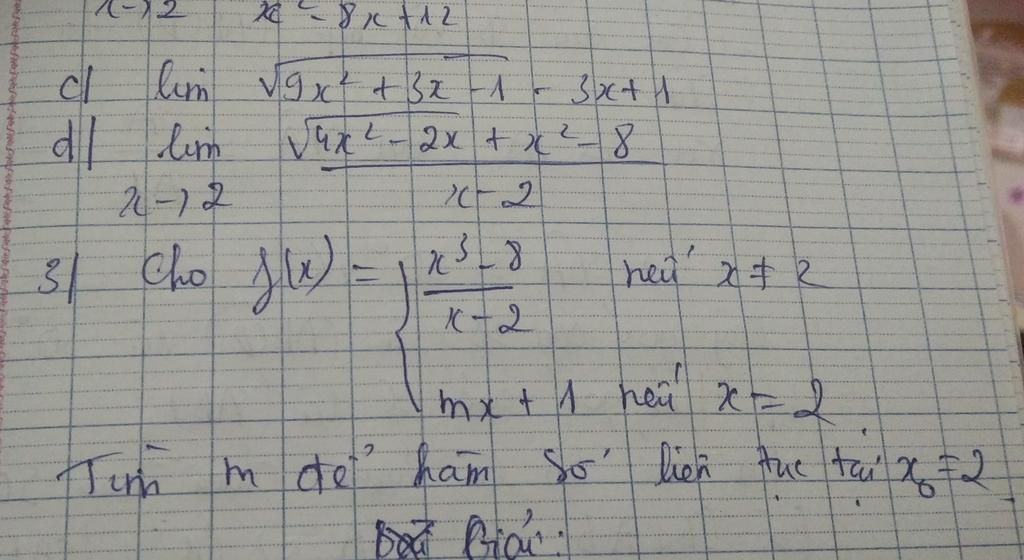 x→2 x² - 8x + 12
c| lim √(9x² + 3x - 1) - 3x + 1
d| lim √(4x² - 2x) + x² - 8
x→2 x - 2
3| Cho f(x) = { x³ - 8 nếu x ≠ 2
x - 2
mx + 1 nếu x = 2
Tìm m để hàm số liên tục tại x₀ = 2
Giải: